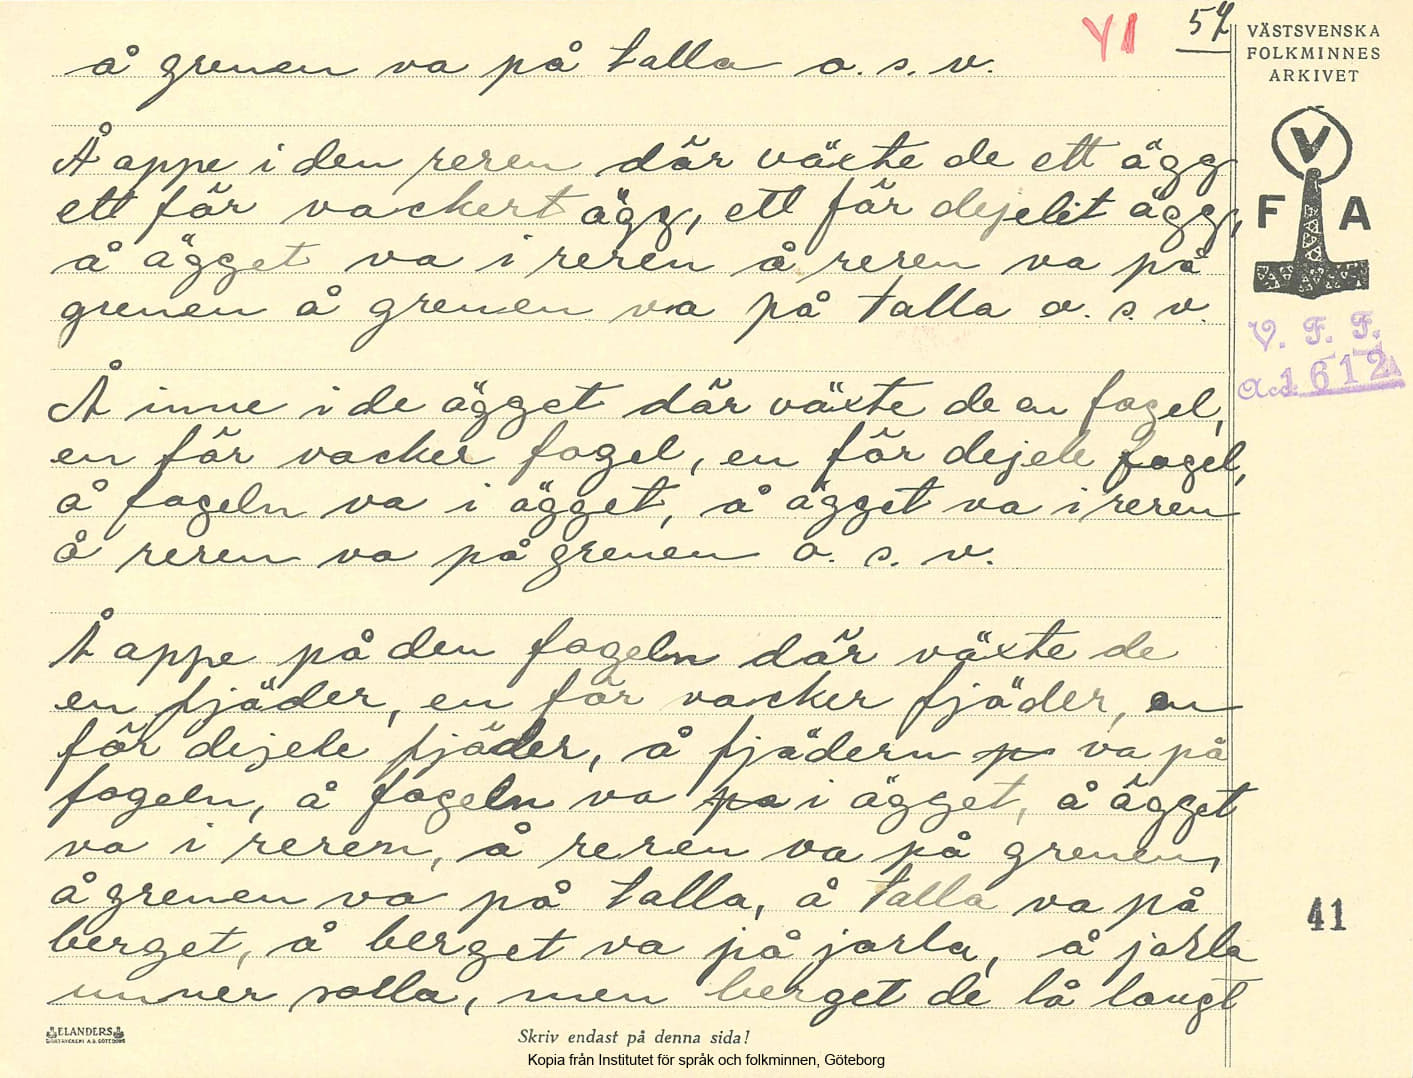 Y1 57
VÄSTSVENSKA
FOLKMINNES
ARKIVET
V
F A
V. F. F.
Acc. 1612
å grenen va på talla o. s. v.
Å appe i den reren där växte de ett ägg
ett får vackert ägg, ett får dejelit ägg,
å ägget va i reren å reren va på
grenen å grenen va på talla o. s. v.
Å inne i de ägget där växte de en fogel,
en får vacker fogel, en får dejele fogel,
å fogeln va i ägget, å ägget va i reren
å reren va på grenen o. s. v.
Å appe på den fogeln där växte de
en fjäder, en får vacker fjäder, en
får dejele fjäder, å fjädern va på
fogeln, å fogeln va i ägget, å ägget
va i reren, å reren va på grenen,
å grenen va på talla, å talla va på
berget, å berget va på jorla, å jorla
unner solla, men berget de lå langt
41
ELANDERS
Skriv endast på denna sida!
Kopia från Institutet för språk och folkminnen, Göteborg